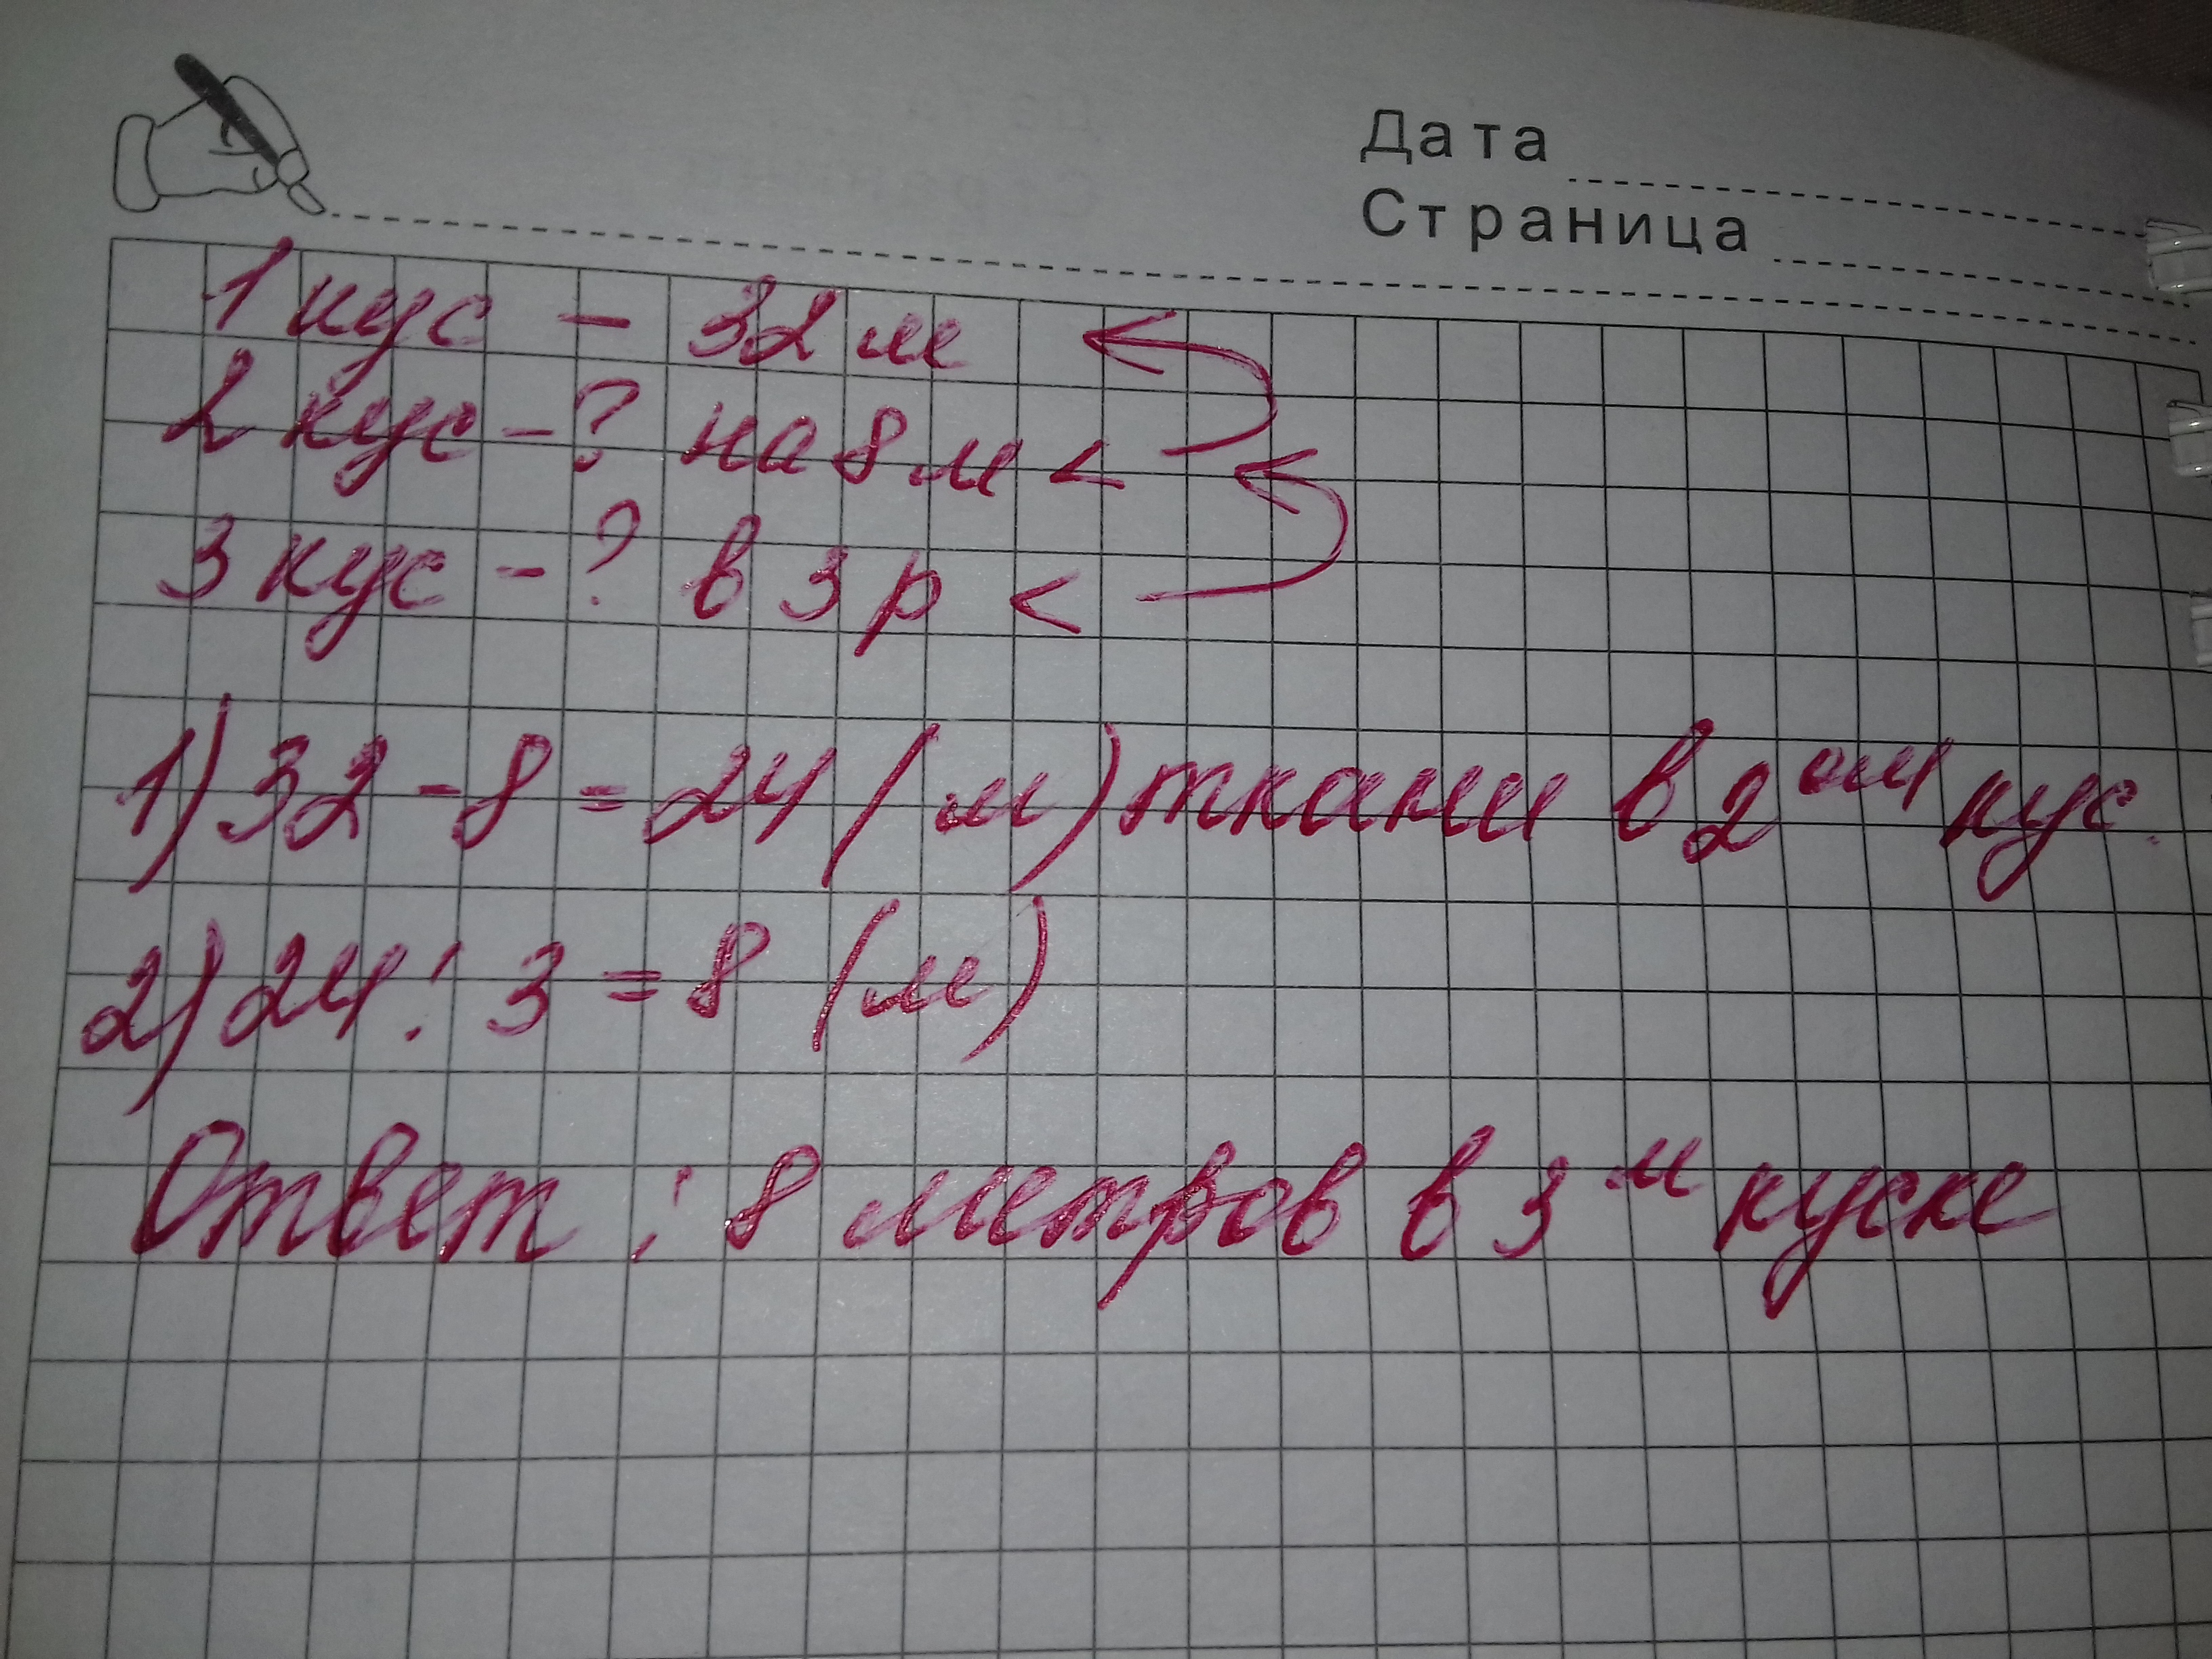 Дата
Страница
1 кус - 32 м
2 кус - ? на 8 м <
3 кус - ? в 3 р <
1) 32 - 8 = 24 (м) ткани в 2ом кус.
2) 24 : 3 = 8 (м)
Ответ : 8 метров в 3м куске